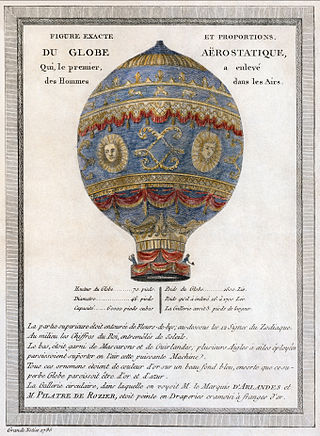 FIGURE EXACTE ET PROPORTIONS,
DU GLOBE AËROSTATIQUE,
Qui, le premier, a enlevé
des Hommes dans les Airs.
Hauteur du Globe 70 pieds
Diametre 46 pieds
Capacité 60000 pieds cubes
Poids du Globe 1600 Liv.
Poids qu'il a enlevé 16 à 1700 Liv.
La Gallerie avoit 3 pieds de largeur
La partie superieure étoit entourée de Fleurs-de-lys; au-dessous les 12 Signes du Zodiaque.
Au milieu les Chiffres du Roi, entremêlés de Soleils.
Le bas, étoit garni de Mascarons et de Guirlandes; plusieurs Aigles à ailes éployées
paroissoient suporter en l'air cette puissante Machine.
Tous ces ornemens étoient de couleur d'or sur un beau fond bleu, ensorte que ce su-
perbe Globe paroissoit être d'or et d'azur.
La Gallerie circulaire, dans laquelle on voyoit M. le Marquis D'ARLANDES et
M. PILATRE DE ROZIER, étoit peinte en Draperies cramoisi à franges d'or.